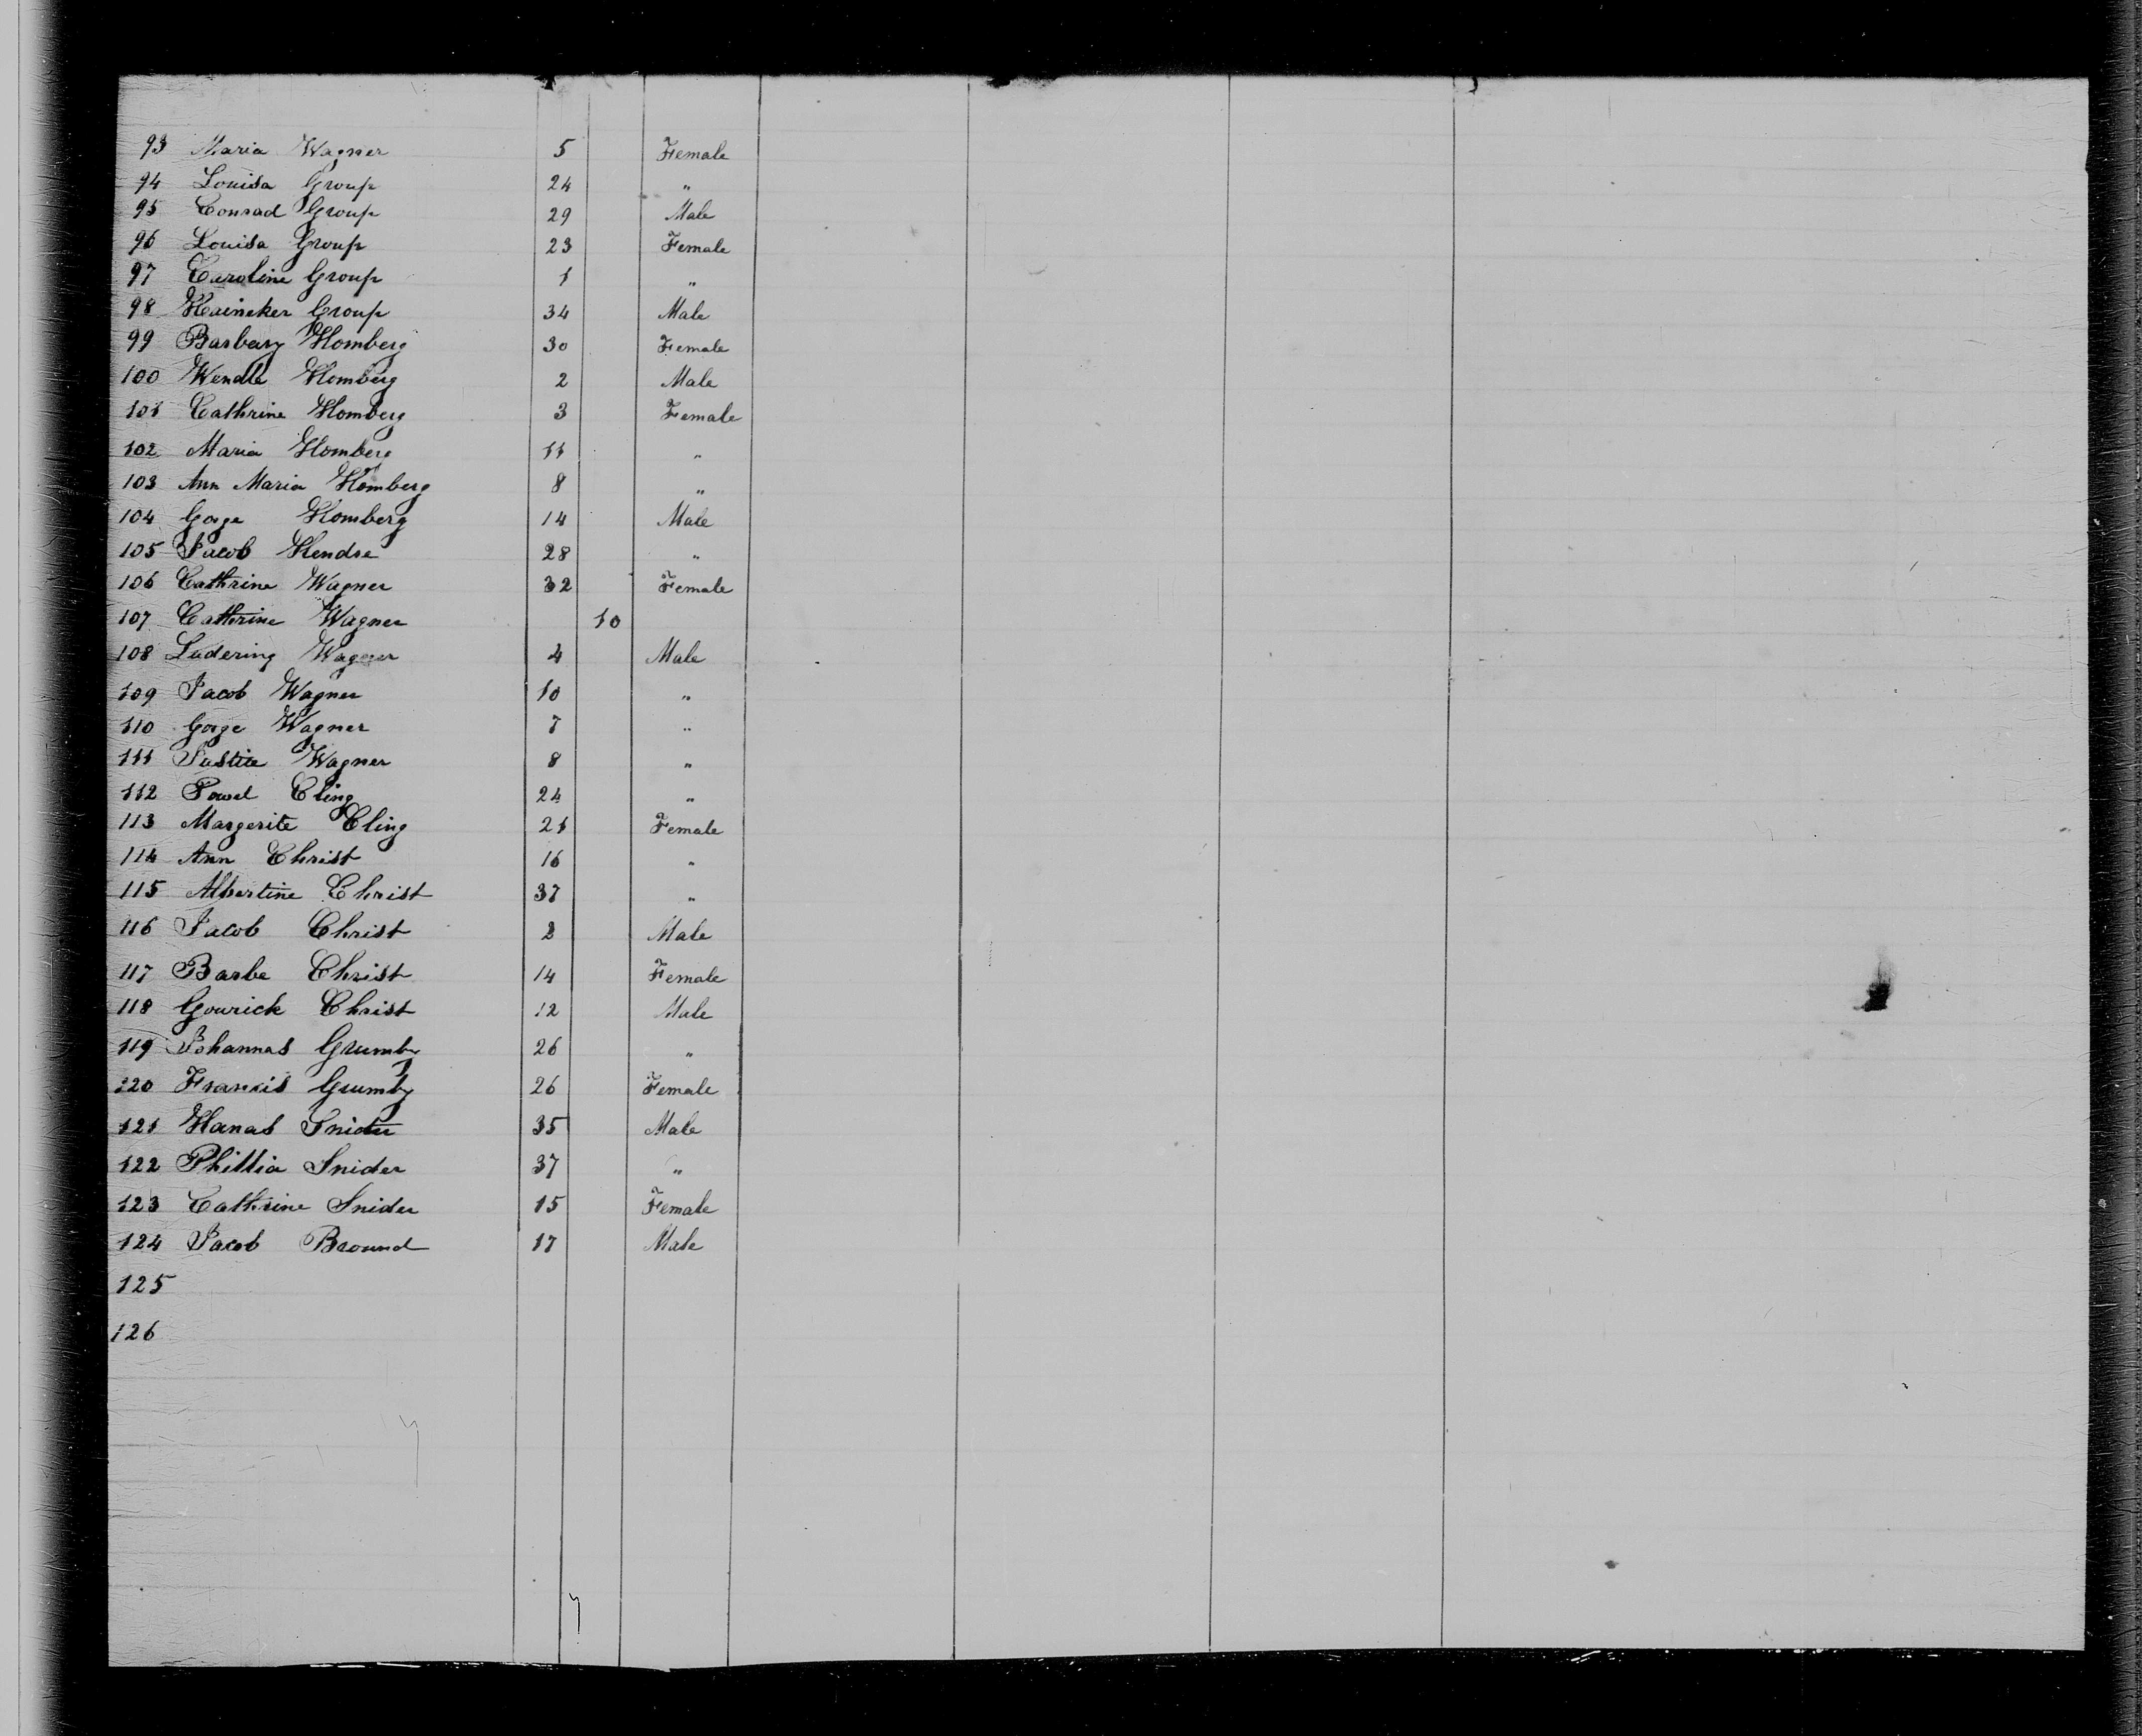 93 Maria Wagner 5 Female
94 Louisa Group 24 "
95 Conrad Group 29 Male
96 Louisa Group 23 Female
97 Caroline Group 1 "
98 Haineker Group 34 Male
99 Barbary Homberg 30 Female
100 Wendle Homberg 2 Male
101 Cathrine Homberg 3 Female
102 Maria Homberg 11 "
103 Ann Maria Homberg 8 "
104 Gorge Homberg 14 Male
105 Jacob Hendre 28 "
106 Cathrine Wagner 32 Female
107 Cathrine Wagner 10
108 Ludering Wagner 4 Male
109 Jacob Wagner 10 "
110 Gorge Wagner 7 "
111 Justice Wagner 8 "
112 Powel Cling 24 "
113 Margerite Cling 21 Female
114 Ann Christ 16 "
115 Albertine Christ 37 "
116 Jacob Christ 2 Male
117 Barbe Christ 14 Female
118 Gowrick Christ 12 Male
119 Johannas Grumby 26 "
120 Francis Grumby 26 Female
121 Hanas Snider 35 Male
122 Phillia Snider 37 "
123 Cathrine Snider 15 Female
124 Jacob Bround 17 Male
125
126